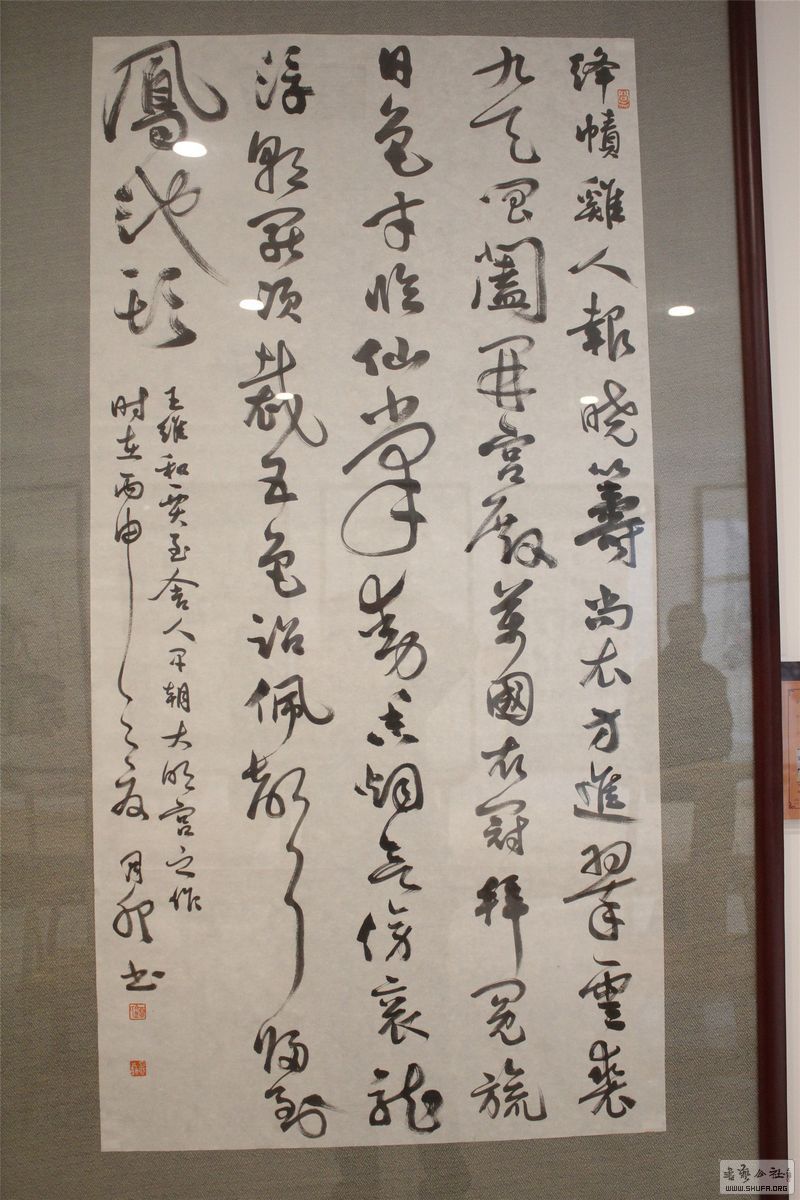 絳幘雞人報晓籌尚衣方進翠雲裘
九天閶闔開宫殿萬國衣冠拜冕旒
日色才临仙掌動香烟欲傍衮龍
浮朝罷須裁五色詔佩聲归到
鳳池頭
王維和賈至舍人早朝大明宫之作
时在丙申之夏月书
書藝公社
WWW.SHUFA.ORG